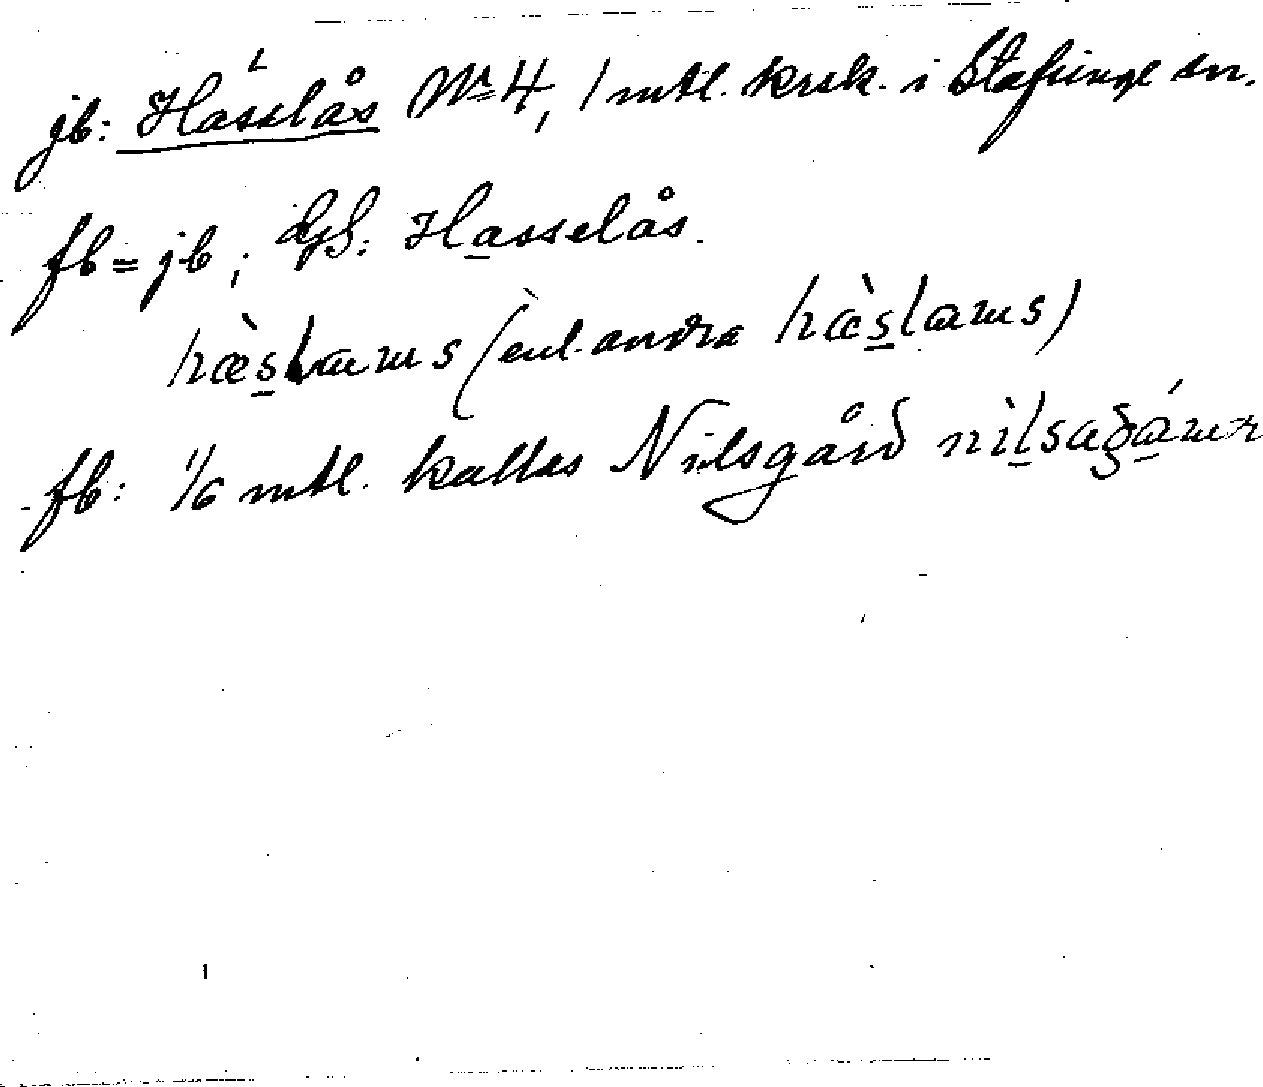 jb: Hasslås Nr 4, 1 mtl. krsk. i Stafsinge sn.
fb = jb; GS: Hasselås.
hæ̀slaws (enl. andra hæ̀slaws)
fb: 1/6 mtl. kallas Nilsgård